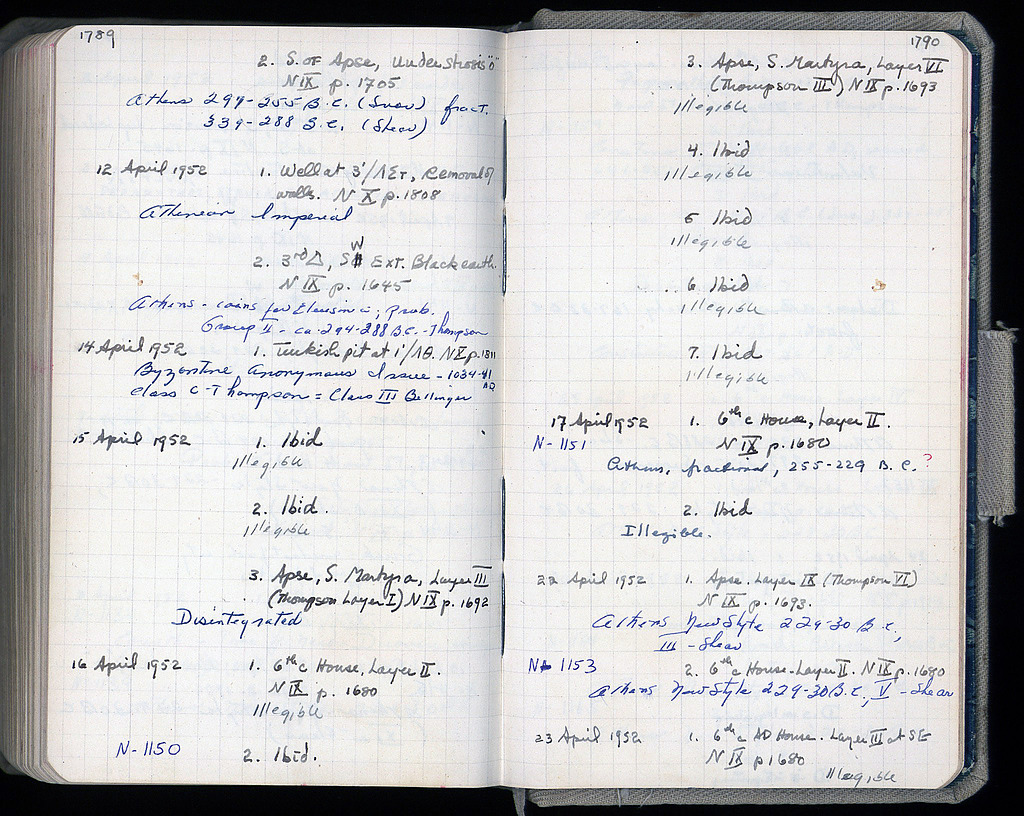 1789
2. S. of Apse, Under strosis "O"
N IX p. 1705
Athens 297-255 B.C. (Svor) fract.
339-288 B.C. (Shear)
12 April 1952 1. Well at 3'/ΛΣΤ, Removal of
walls. N X p. 1808
Athenian Imperial
2. 3rd Δ, SW Ext. Black earth.
N IX p. 1645
Athens - coins for Eleusinia; Prob.
Group II - ca. 294-288 B.C. - Thompson
14 April 1952 1. Turkish pit at 1'/ΛΘ. N X p. 1811
Byzantine Anonymous Issue - 1034-41 AD
Class C - Thompson = Class III Bellinger
15 April 1952 1. Ibid
Illegible
2. Ibid.
Illegible
3. Apse, S. Martyra, Layer III
(Thompson Layer I) N IX p. 1692
Disintegrated
16 April 1952 1. 6th c House, Layer II.
N IX p. 1680
Illegible
N-1150 2. Ibid.
1790
3. Apse, S. Martyra, Layer VI
(Thompson III) N IX p. 1693
Illegible
4. Ibid
Illegible
5 Ibid
Illegible
6. Ibid
Illegible
7. Ibid
Illegible
17 April 1952 1. 6th c House, Layer II.
N-1151 N IX p. 1680
Athens, fractional, 255-229 B.C. ?
2. Ibid
Illegible.
22 April 1952 1. Apse. Layer IX (Thompson VI)
N IX p. 1693.
Athens New Style 229-30 B.C.,
III - Shear
N 1153 2. 6th c House - Layer II. N IX p. 1680
Athens New Style 229-30 B.C., V - Shear
23 April 1952 1. 6th c AD House. Layer III at SE
N IX p 1680
Illegible